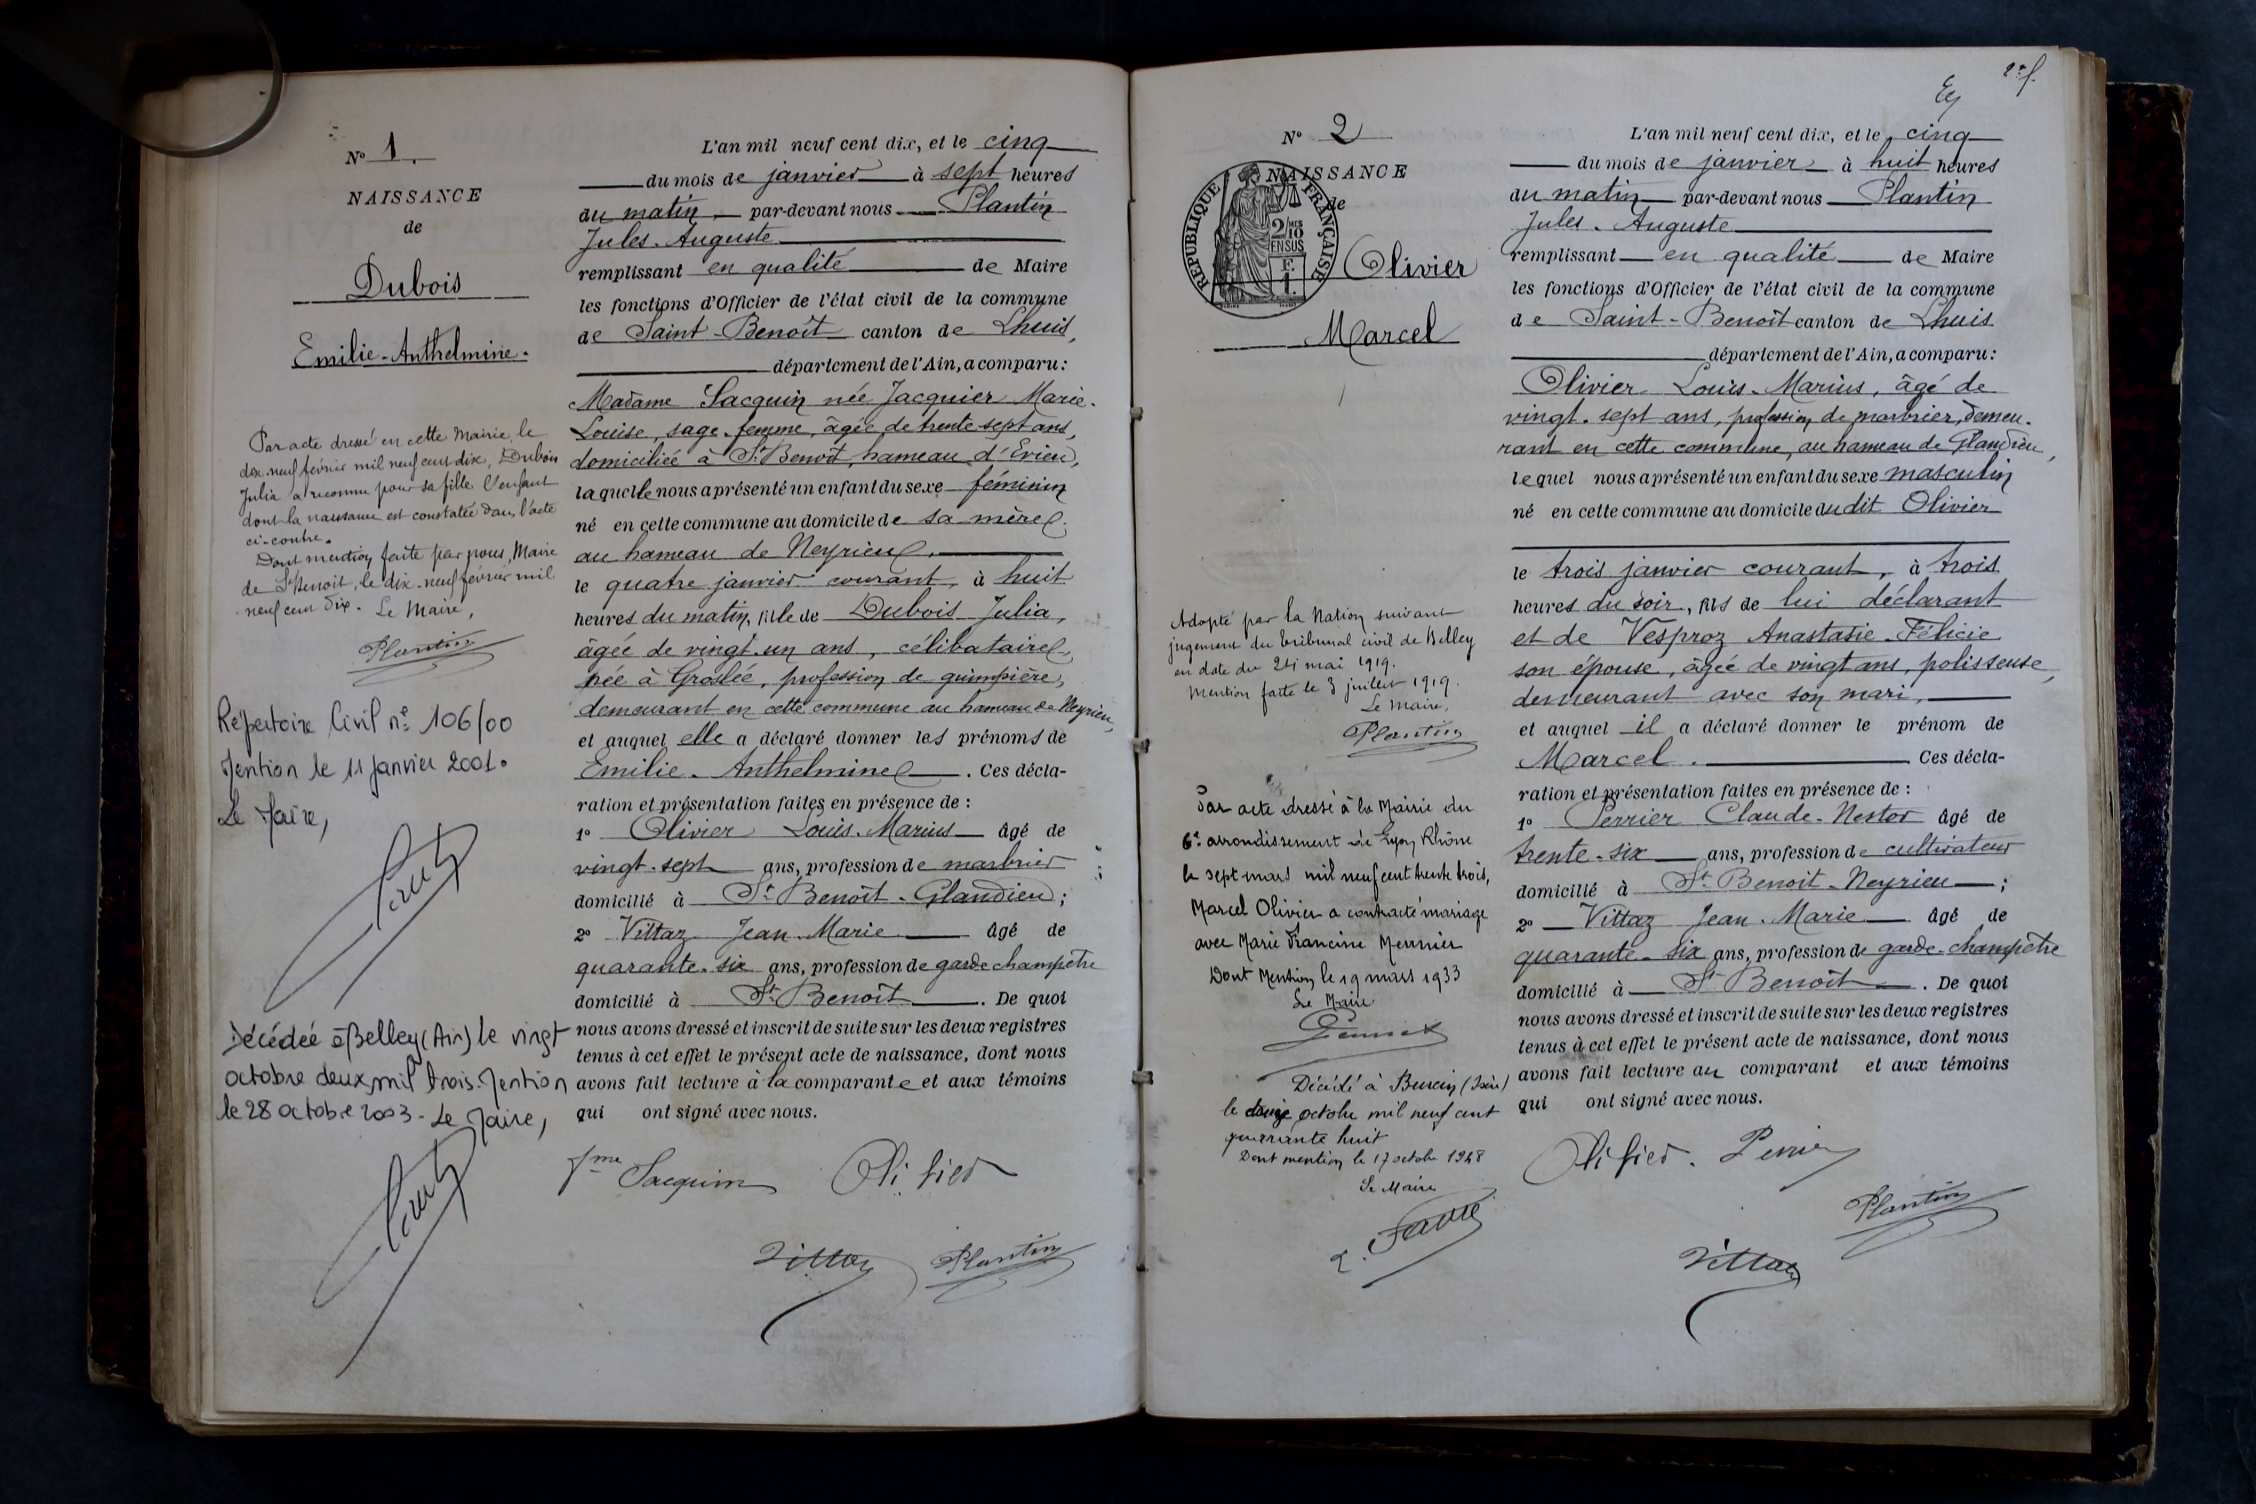 N° 1.
NAISSANCE
de
Dubois
Emilie-Anthelmine.
Par acte dressé en cette Mairie, le
dix-neuf février mil neuf cent dix, Dubois
Julia a reconnu pour sa fille l'enfant
dont la naissance est constatée dans l'acte
ci-contre.
Dont mention faite par nous, Maire
de St Benoit, le dix-neuf février mil
neuf cent dix. Le Maire,
Plantin
Répertoire Civil n° 106/00
Mention le 11 janvier 2001.
Le Maire,
Décédée à Belley (Ain) le vingt
octobre deux mil trois. Mention
le 28 octobre 2003 - Le Maire,
L'an mil neuf cent dix, et le cinq
du mois de janvier à sept heures
du matin, par-devant nous Plantin
Jules-Auguste
remplissant en qualité de Maire
les fonctions d'Officier de l'état civil de la commune
de Saint-Benoît canton de Lhuis,
département de l'Ain, a comparu:
Madame Sacquin née Jacquier Marie-
Louise, sage-femme, âgée de trente sept ans,
domiciliée à St Benoît, hameau d'Evieu,
laquelle nous a présenté un enfant du sexe féminin
né en cette commune au domicile de sa mère
au hameau de Neyrieu,
le quatre janvier courant, à huit
heures du matin, fille de Dubois Julia,
âgée de vingt-un ans, célibataire,
née à Groslée, profession de guimpière,
demeurant en cette commune au hameau de Neyrieu,
et auquel elle a déclaré donner les prénoms de
Emilie-Anthelmine. Ces décla-
ration et présentation faites en présence de :
1° Olivier Louis-Marius âgé de
vingt-sept ans, profession de marbrier
domicilié à St Benoît-Glandieu;
2° Vittaz Jean-Marie âgé de
quarante-six ans, profession de garde champêtre
domicilié à St Benoît. De quoi
nous avons dressé et inscrit de suite sur les deux registres
tenus à cet effet le présent acte de naissance, dont nous
avons fait lecture à la comparante et aux témoins
qui ont signé avec nous.
Fme Sacquin Olivier
Vittaz Plantin
2e f.
N° 2
NAISSANCE
de
REPUBLIQUE FRANÇAISE
2/10 EN SUS
F. 1.
Olivier
Marcel
Adopté par la Nation suivant
jugement du tribunal civil de Belley
en date du 24 mai 1919.
Mention faite le 3 juillet 1919.
Le Maire,
Plantin
Par acte dressé à la Mairie du
6e arrondissement de Lyon, Rhône
le sept mars mil neuf cent trente trois,
Marcel Olivier a contracté mariage
avec Marie Francine Meunier
Dont Mention le 19 mars 1933
Le Maire
Décédé à (Isère)
le octobre mil neuf cent
quarante huit
Dont mention le 17 octobre 1948
Le Maire
L'an mil neuf cent dix, et le cinq
du mois de janvier à huit heures
du matin par-devant nous Plantin
Jules-Auguste
remplissant en qualité de Maire
les fonctions d'Officier de l'état civil de la commune
de Saint-Benoît canton de Lhuis
département de l'Ain, a comparu:
Olivier Louis-Marius, âgé de
vingt-sept ans, profession de marbrier, demeu-
rant en cette commune, au hameau de Glandieu,
lequel nous a présenté un enfant du sexe masculin
né en cette commune au domicile dudit Olivier
le trois janvier courant, à trois
heures du soir, fils de lui déclarant
et de Vesproz Anastasie-Félicie
son épouse, âgée de vingt ans, polisseuse,
demeurant avec son mari,
et auquel il a déclaré donner le prénom de
Marcel. Ces décla-
ration et présentation faites en présence de :
1° Perrier Claude-Nestor âgé de
trente-six ans, profession de cultivateur
domicilié à St Benoit-Neyrieu;
2° Vittaz Jean-Marie âgé de
quarante-six ans, profession de garde-champêtre
domicilié à St Benoît. De quoi
nous avons dressé et inscrit de suite sur les deux registres
tenus à cet effet le présent acte de naissance, dont nous
avons fait lecture au comparant et aux témoins
qui ont signé avec nous.
Olivier. Perrier
Plantin
Vittaz